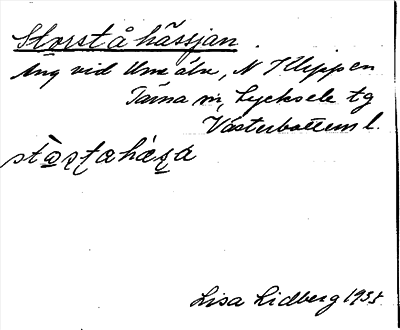 Storståhässjan
Äng vid Ume älv, N Klippen
Tärna sn, Lycksele tg
Västerbottens l.
Lisa Lidberg 1935